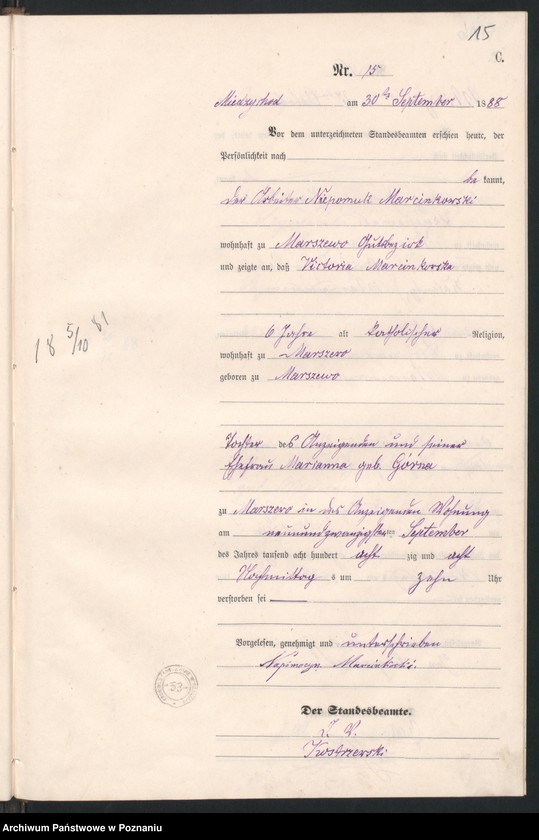 15
C.
Nr. 15
Miedzychod am 30ten September 1888
Vor dem unterzeichneten Standesbeamten erschien heute, der
Persönlichkeit nach
be kannt,
der Arbeiter Nepomuk Marcinkowski
wohnhaft zu Marszewo Gutsbezirk
und zeigte an, daß Victoria Marcinkowska
6 Jahre alt katholischer Religion,
wohnhaft zu Marszewo
geboren zu Marszewo
18 5/10 81
Tochter des Anzeigenden und seiner
Ehefrau Marianna geb. Górna
zu Marszewo in des Anzeigenden Wohnung
am neunundzwanzigsten September
des Jahres tausend acht hundert acht zig und acht
Nachmittag s um zehn Uhr
verstorben sei
Vorgelesen, genehmigt und unterschrieben
Marcinkoski.
53
Der Standesbeamte.
I. V.
Kostrzewski
Archiwum Państwowe w Poznaniu